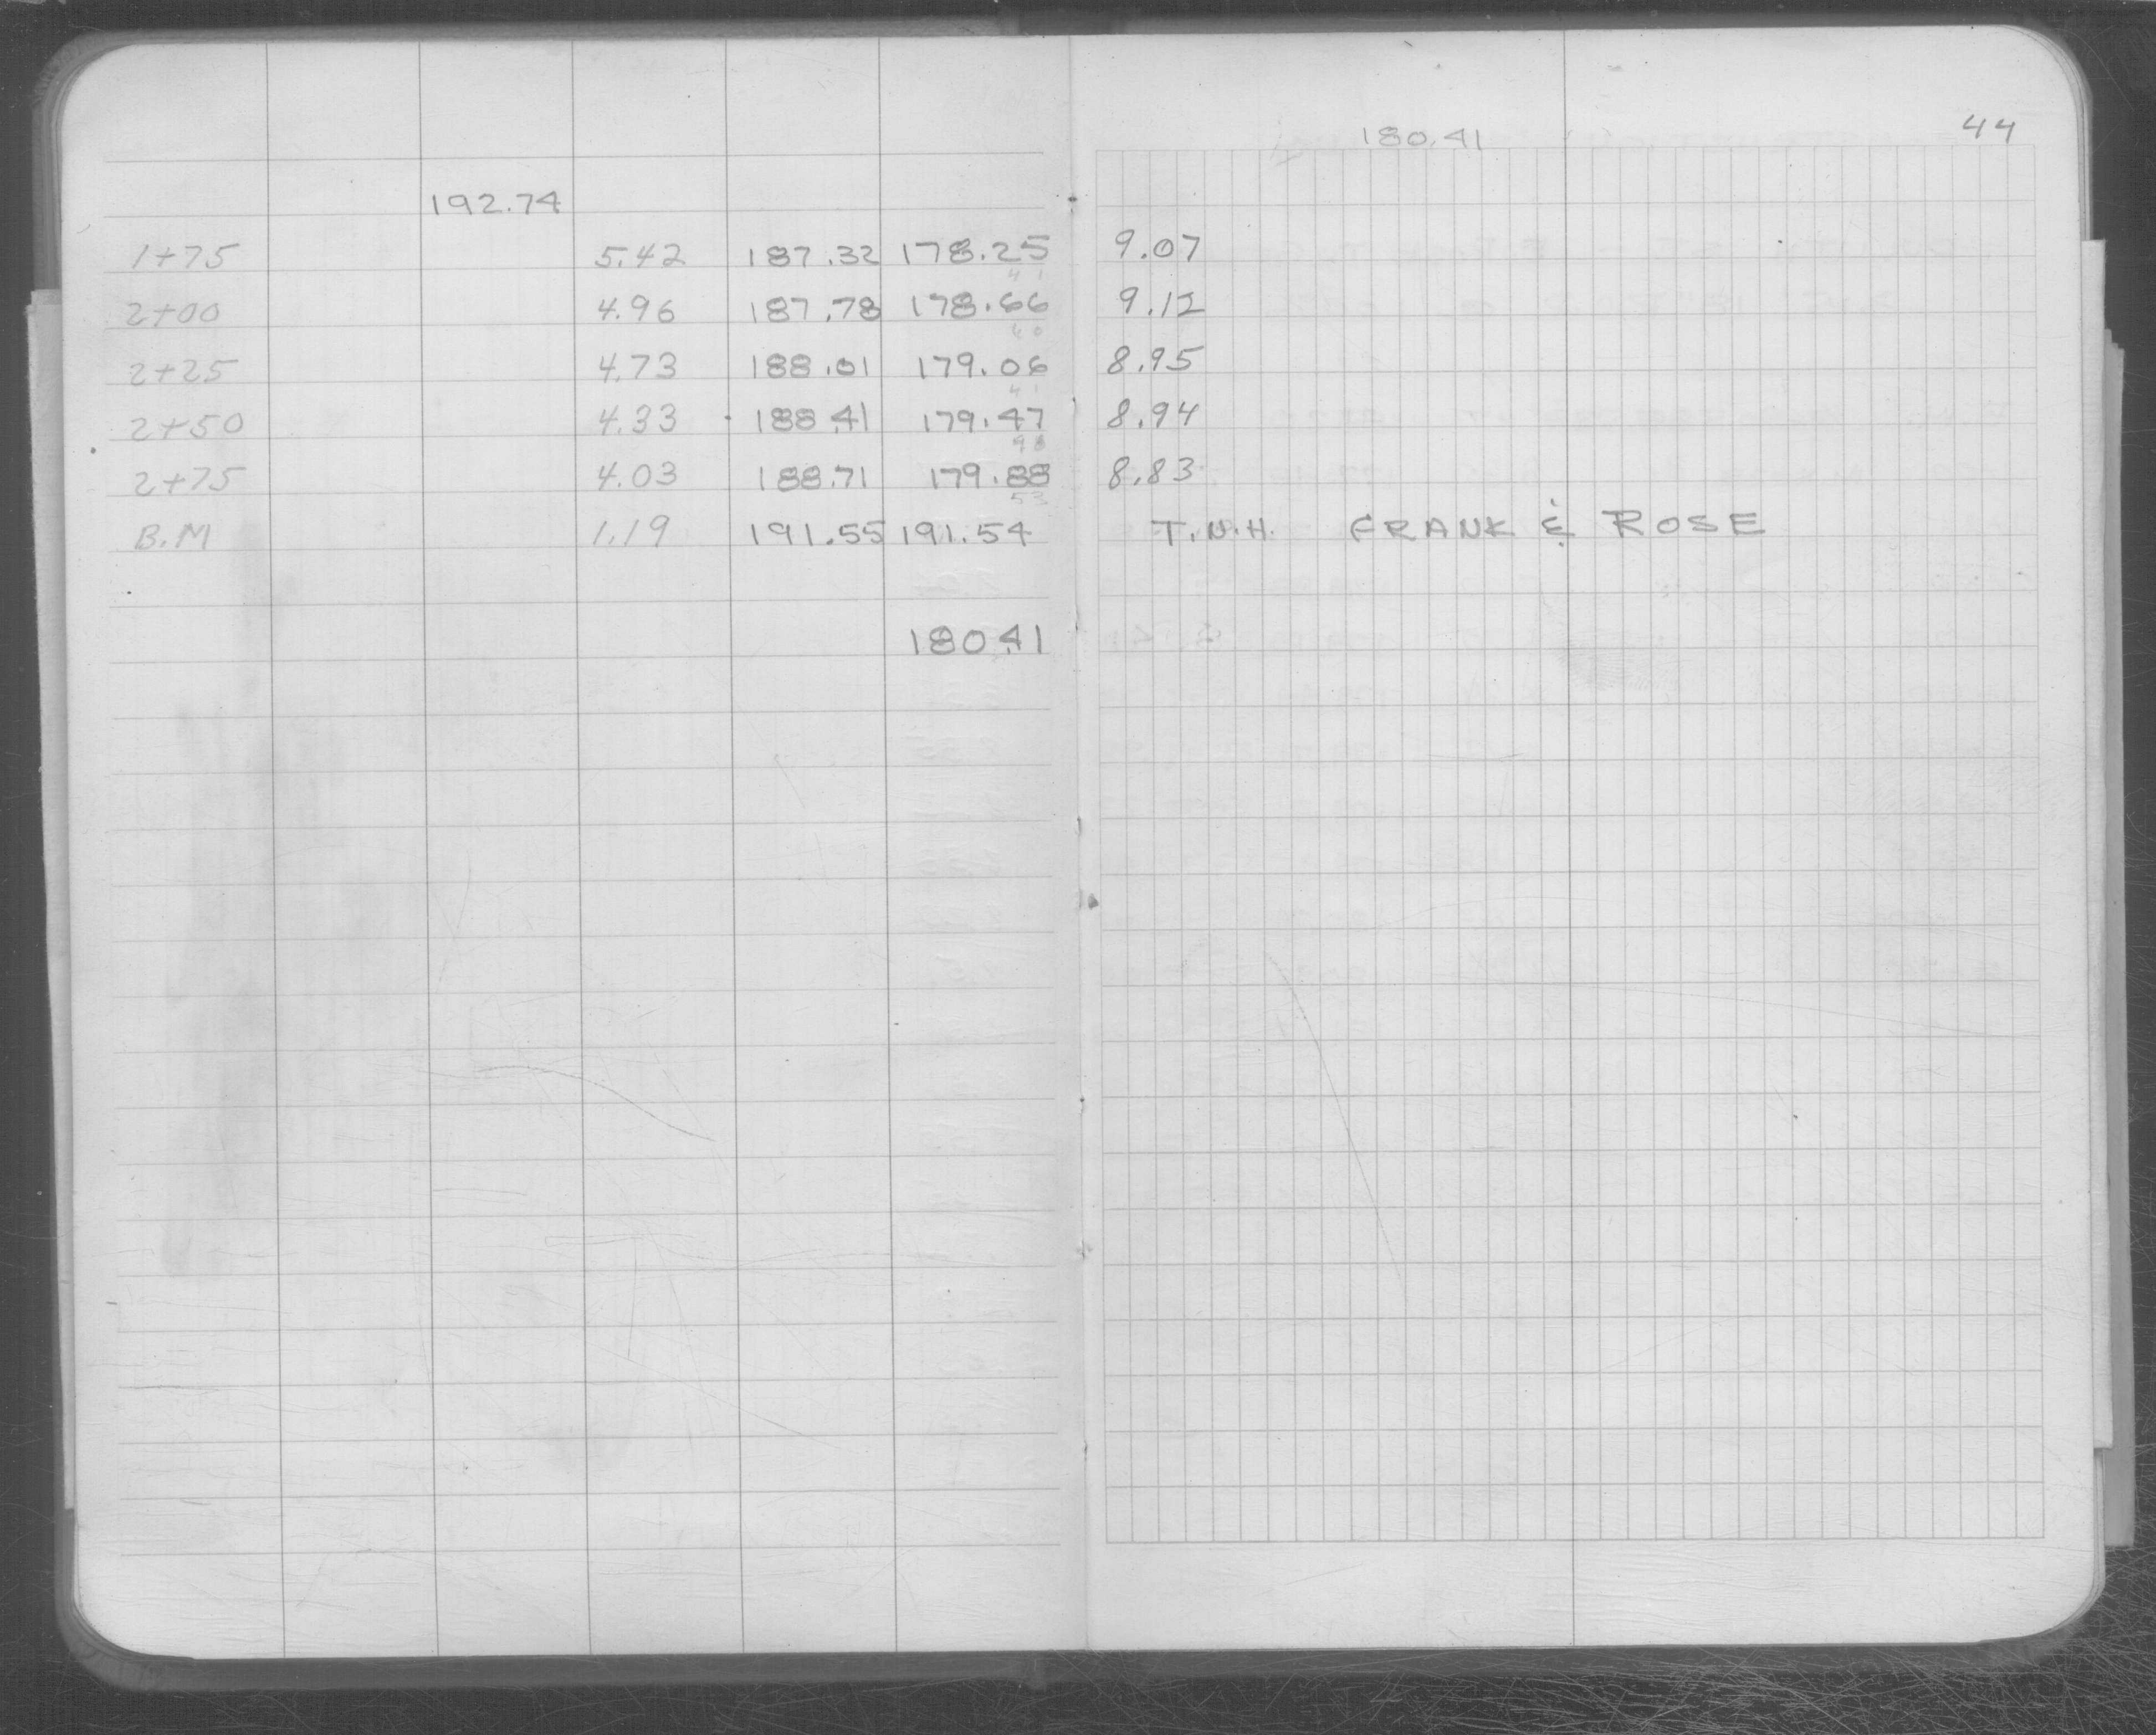 180.41 44
192.74
1+75 5.42 187.32 178.25 9.07
41
2+00 4.96 187.78 178.66 9.12
40
2+25 4.73 188.01 179.06 8.95
41
2+50 4.33 188.41 179.47 8.94
2+75 4.03 188.71 179.88 8.83
53
B.M 1.19 191.55 191.54 T.N.H. FRANK & ROSE
180.41